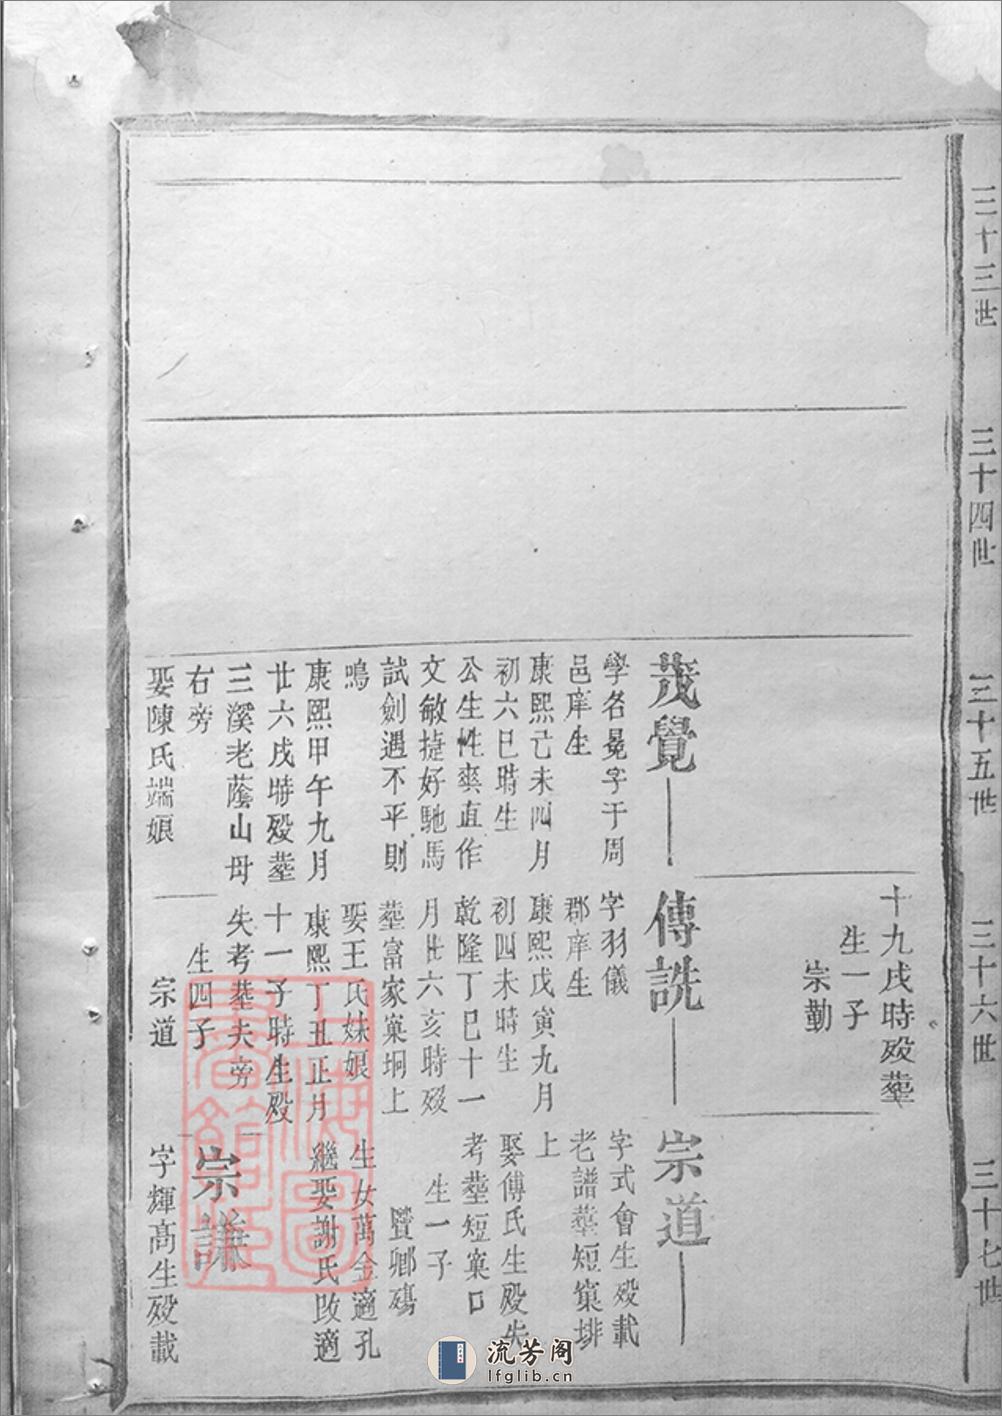 三十三世
三十四世
三十五世
三十六世
三十七世
十九戌時歿塟
生一子
宗勤
茂覺
學名冕字于周
邑庠生
康熙己未四月
初六巳時生
公生性爽直作
文敏捷好馳馬
試劍遇不平則
鳴
康熙甲午九月
廿六戌時歿塟
三溪老蔭山母
右旁
娶陳氏端娘
傳詵
字羽儀
郡庠生
康熙戊寅九月
初四未時生
乾隆丁巳十一
月廿六亥時歿
塟富家窠垌上
娶王氏妹娘
康熙丁丑正月
十一子時生歿
失考塟夫旁
生四子
宗道
宗道
字式會生歿載
老譜塟短窠排
上
娶傅氏生歿失
考塟短窠口
生一子
賢鄉殤
生女萬金適孔
繼娶謝氏改適
宗謙
字輝高生歿載
上海圖
書館藏
流芳阁
lfglib.cn